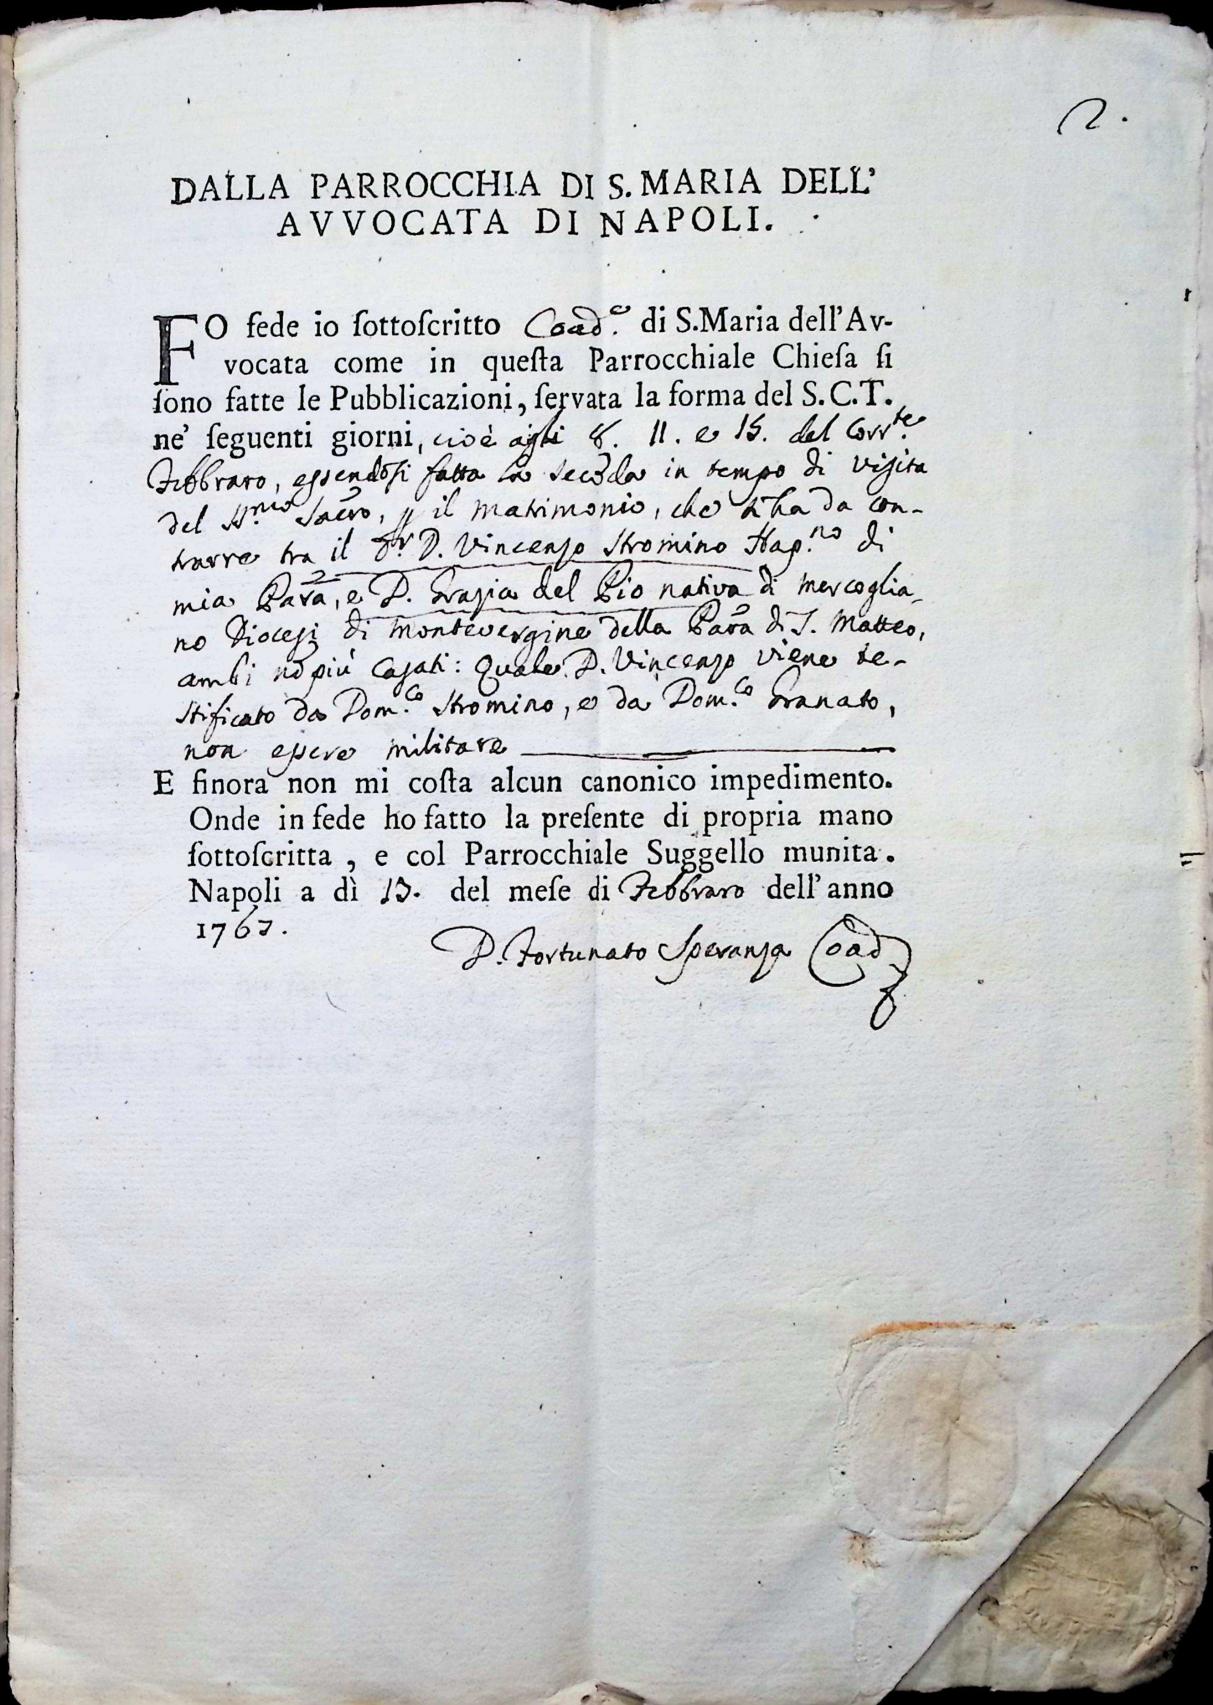 2.
DALLA PARROCCHIA DI S. MARIA DELL'
AVVOCATA DI NAPOLI.
FO fede io ſottoſcritto Coad.e di S.Maria dell'Av-
vocata come in queſta Parrocchiale Chieſa ſi
ſono fatte le Pubblicazioni, ſervata la forma del S.C.T.
ne' ſeguenti giorni, cioè agli 8. 11. e 15. del Corr.te
Febbraro, essendosi fatta la secõda in tempo di visita
del SS.mo Sacro, p il matrimonio, che s'ha da con-
trarre tra il Sr. D. Vincenzo Stromino Nap.no di
mia Para, e D. Grazia del Pio nativa di Mercoglia-
no Diocesi di Montevergine della Para di S. Matteo,
ambi nõ più Casati: Quale D. Vincenzo viene te-
stificato da Dom.co Stromino, e da Dom.co Granato,
non essere militare
E finora non mi coſta alcun canonico impedimento.
Onde in fede ho fatto la preſente di propria mano
ſottoſcritta, e col Parrocchiale Suggello munita.
Napoli a dì 15. del meſe di Febbraro dell'anno
1767.
D. Fortunato Speranza Coad